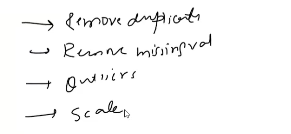 → Remove duplicats
→ Remove missingval
→ Outliers
→ Scale